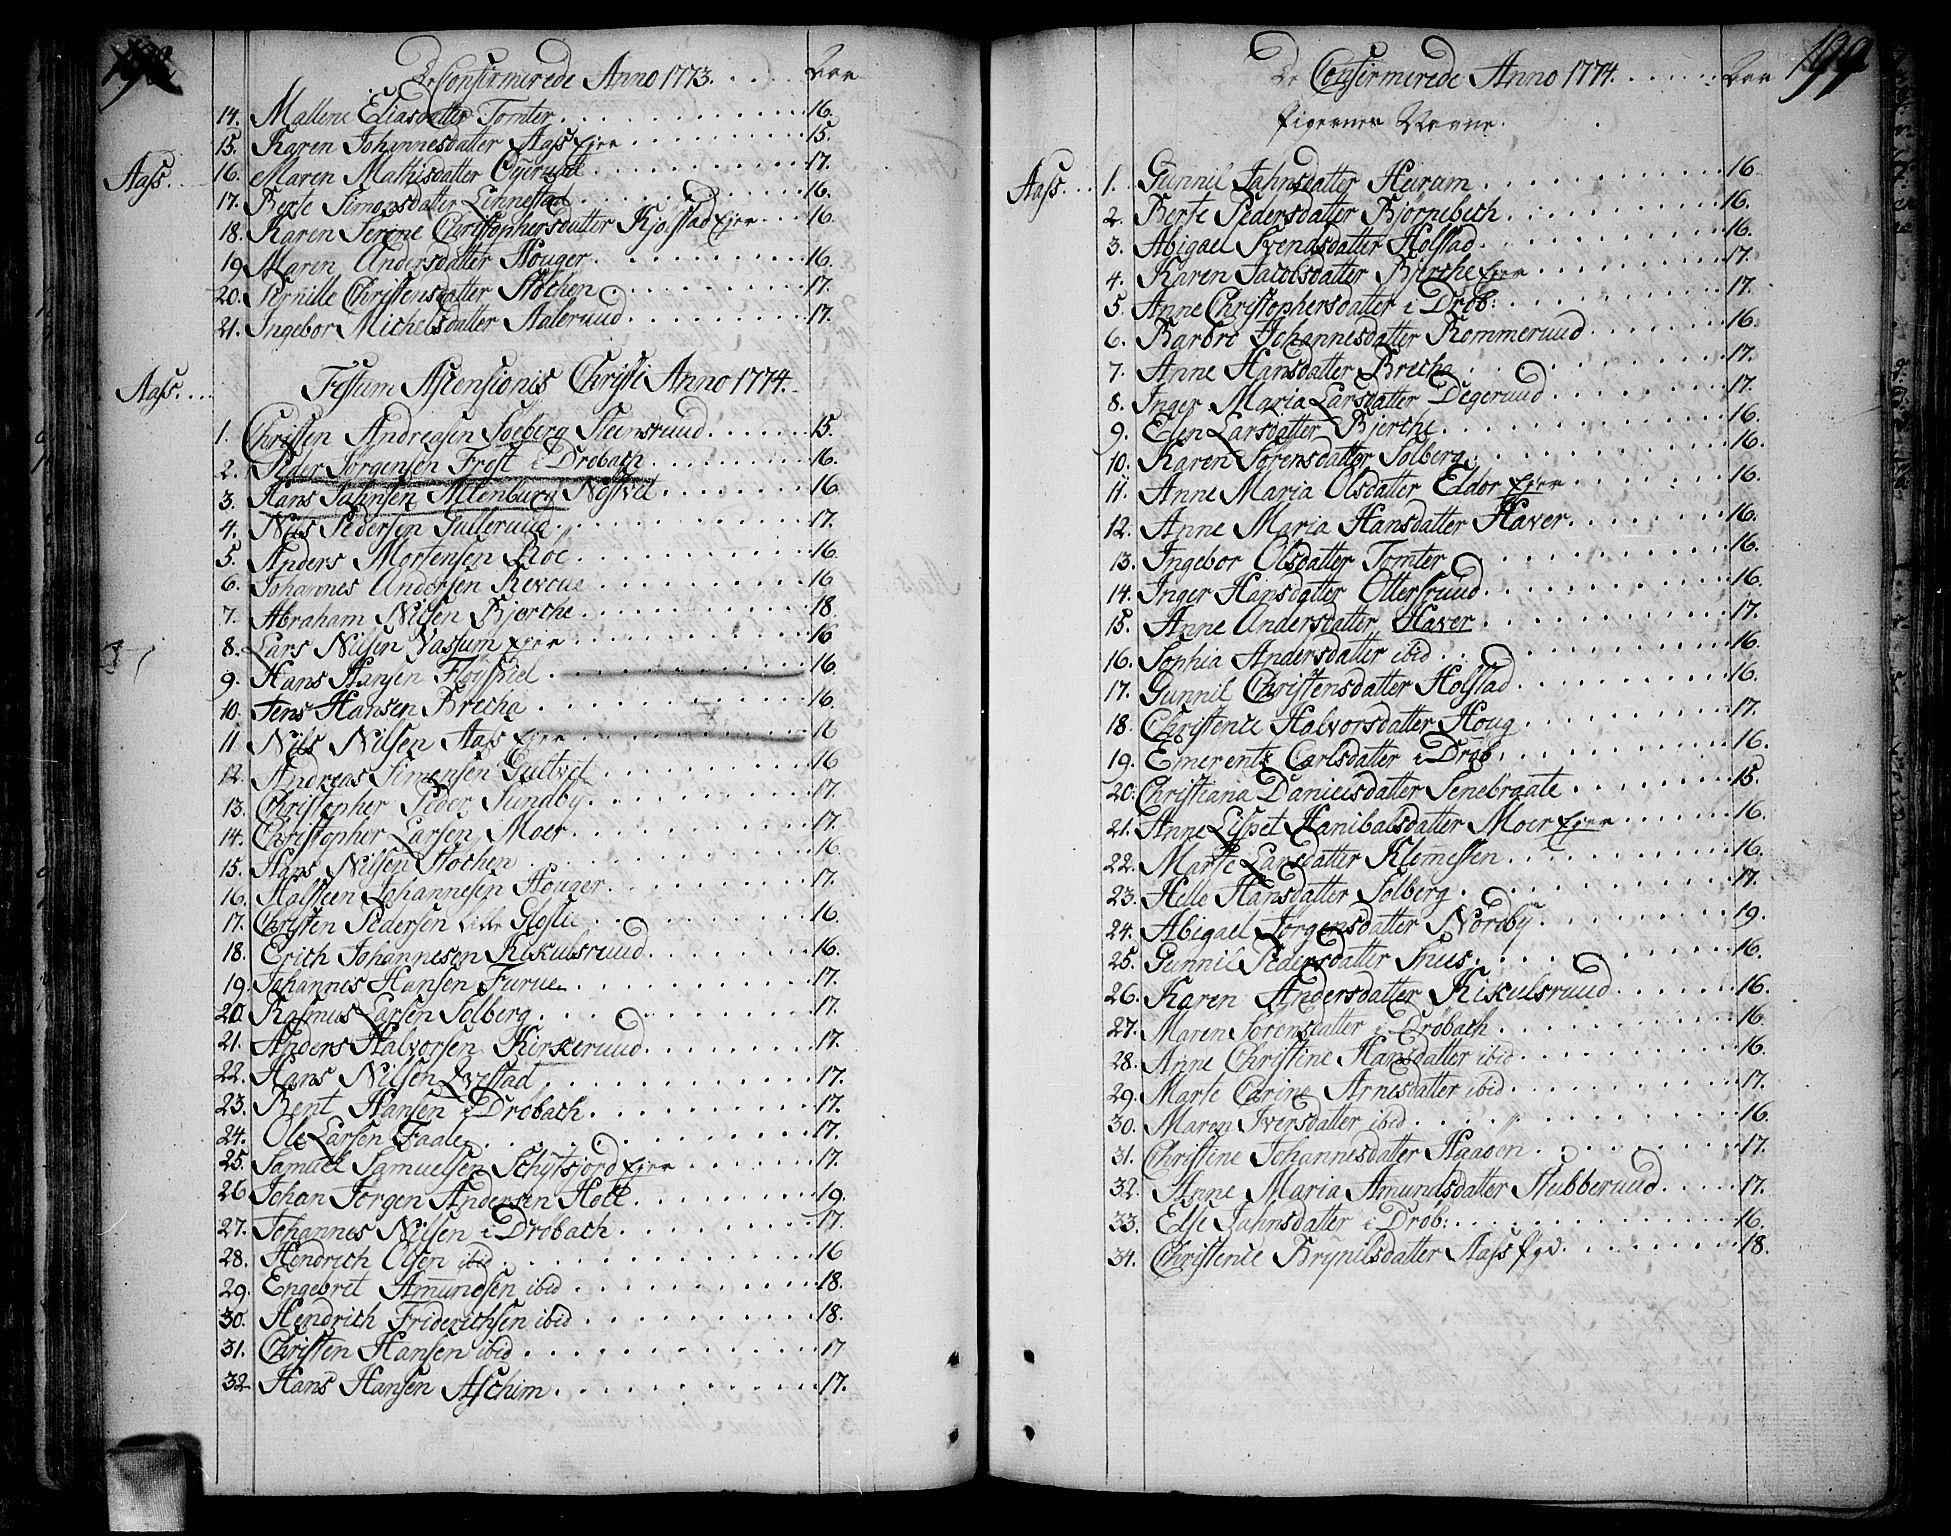 De Confirmerede Anno 1773.
Aas....
14. Mallene Eliasdatter Tomter 16.
15. Karen Johannesdatter Aass Ejer 15.
16. Maren Mathisdatter Ogerud 17.
17. Berte Simonsdatter Linnestad 16.
18. Karen Serene Christophersdatter Kjølstad Ejer 16.
19. Maren Andersdatter Houger 16.
20. Pernille Christensdatter Stochen 17.
21. Ingebor Michelsdatter Aalerud 17.
Aas....
Festum Ascensionis Christi Anno 1774.
1. Christen Andreasen Soeberg Steensruud 15.
2. Peder Jörgensen Frost i Dröbach 16.
3. Hans Jahnsen Altenburg Nöstvet 16.
4. Nils Pedersen Gulleruud 17.
5. Anders Mortensen Roe 16.
6. Johannes Andersen Revoue 16
7. Abraham Nilsen Bjerche 18.
8. Lars Nilsen Vassum Ejer 16
9. Hans Hansen Flöjspiel 16.
10. Jens Hansen Brecha 16.
11 Nils Nilsen Aas Ejer 16
12. Andreas Simensen Gultvet 16
13. Christopher Peder Sundby 17.
14. Christopher Larsen Moer 17.
15. Hans Nilsen Stochen 16.
16. Halsteen Johannesen Houger 17.
17. Christen Pedersen Lille Glosli 16.
18. Erich Johannesen Kikulsruud 16.
19. Johannes Hansen Furue 17.
20. Rasmus Larsen Solberg 17.
21. Anders Halvorsen Kirkeruud 17.
22. Hans Nilsen Ivestad 17.
23. Bent Hansen i Dröbach 17.
24. Ole Larsen Faale 17.
25. Samuel Samuelsen Schytsjord Ejer 17.
26. Johan Jorgen Andersen Holt 19.
27. Johannes Nilsen i Dröbach 17.
28. Hendrich Olsen ibid 16
29. Engebret Amundsen ibid 18.
30. Hendrich Friderichsen ibid 18.
31. Christen Hansen ibid 17
32. Hans Hansen Aschim 17.
199
De Confirmerede Anno 1774.
Pigernes Navne.
Aas....
1. Gunnil Jahnsdatter Heiram 16
2. Berte Pedersdatter Björnebech 16.
3. Abigael Svendsdatter Holstad 16.
4. Karen Jacobsdatter Bjerche Ejer 17.
5. Anne Christophersdatter i Dröb: 17.
6. Barbro Johannesdatter Rommeruud 16.
7. Anne Hansdatter Brecha 17.
8. Inger Maria Larsdatter Degeruud 17.
9. Elen Larsdatter Bjerche 16.
10. Karen Sörensdatter Solberg 16.
11. Anne Maria Olsdatter Eldor Ejer 16.
12. Anne Maria Hansdatter Haver 16.
13. Ingebor Olsdatter Tomter 16.
14. Inger Hansdatter Ottersruud 16.
15. Anne Andersdatter Haver 17.
16. Sophia Andersdatter ibid 16.
17. Gunnil Christensdatter Holstad 16.
18. Christence Halvorsdatter Houg 17.
19. Emerents Carlsdatter i Dröb. 16.
20. Christiana Danielsdatter Senebraate 15.
21. Anne Lispet Hanibalsdatter Moer Ejer 16.
22. Marte Larsdatter Klemessen 16.
23. Helle Hansdatter Solberg 17.
24. Abigael Jörgensdatter Nordby 19.
25. Gunnil Pedersdatter Snees 16.
26. Karen Andersdatter Kikulsruud 16.
27. Maren Sörensdatter i Dröbach 16.
28. Anne Christine Hansdatter ibid 16.
29. Marte Carine Arnesdatter ibid 17.
30. Maren Iversdatter ibid 16.
31. Christine Johannesdatter Haaoen 17.
32. Anne Maria Amundsdatter Stubberuud 17.
33. Else Jahnsdatter i Dröb: 16.
34. Christence Brynilsdatter Aass 18.